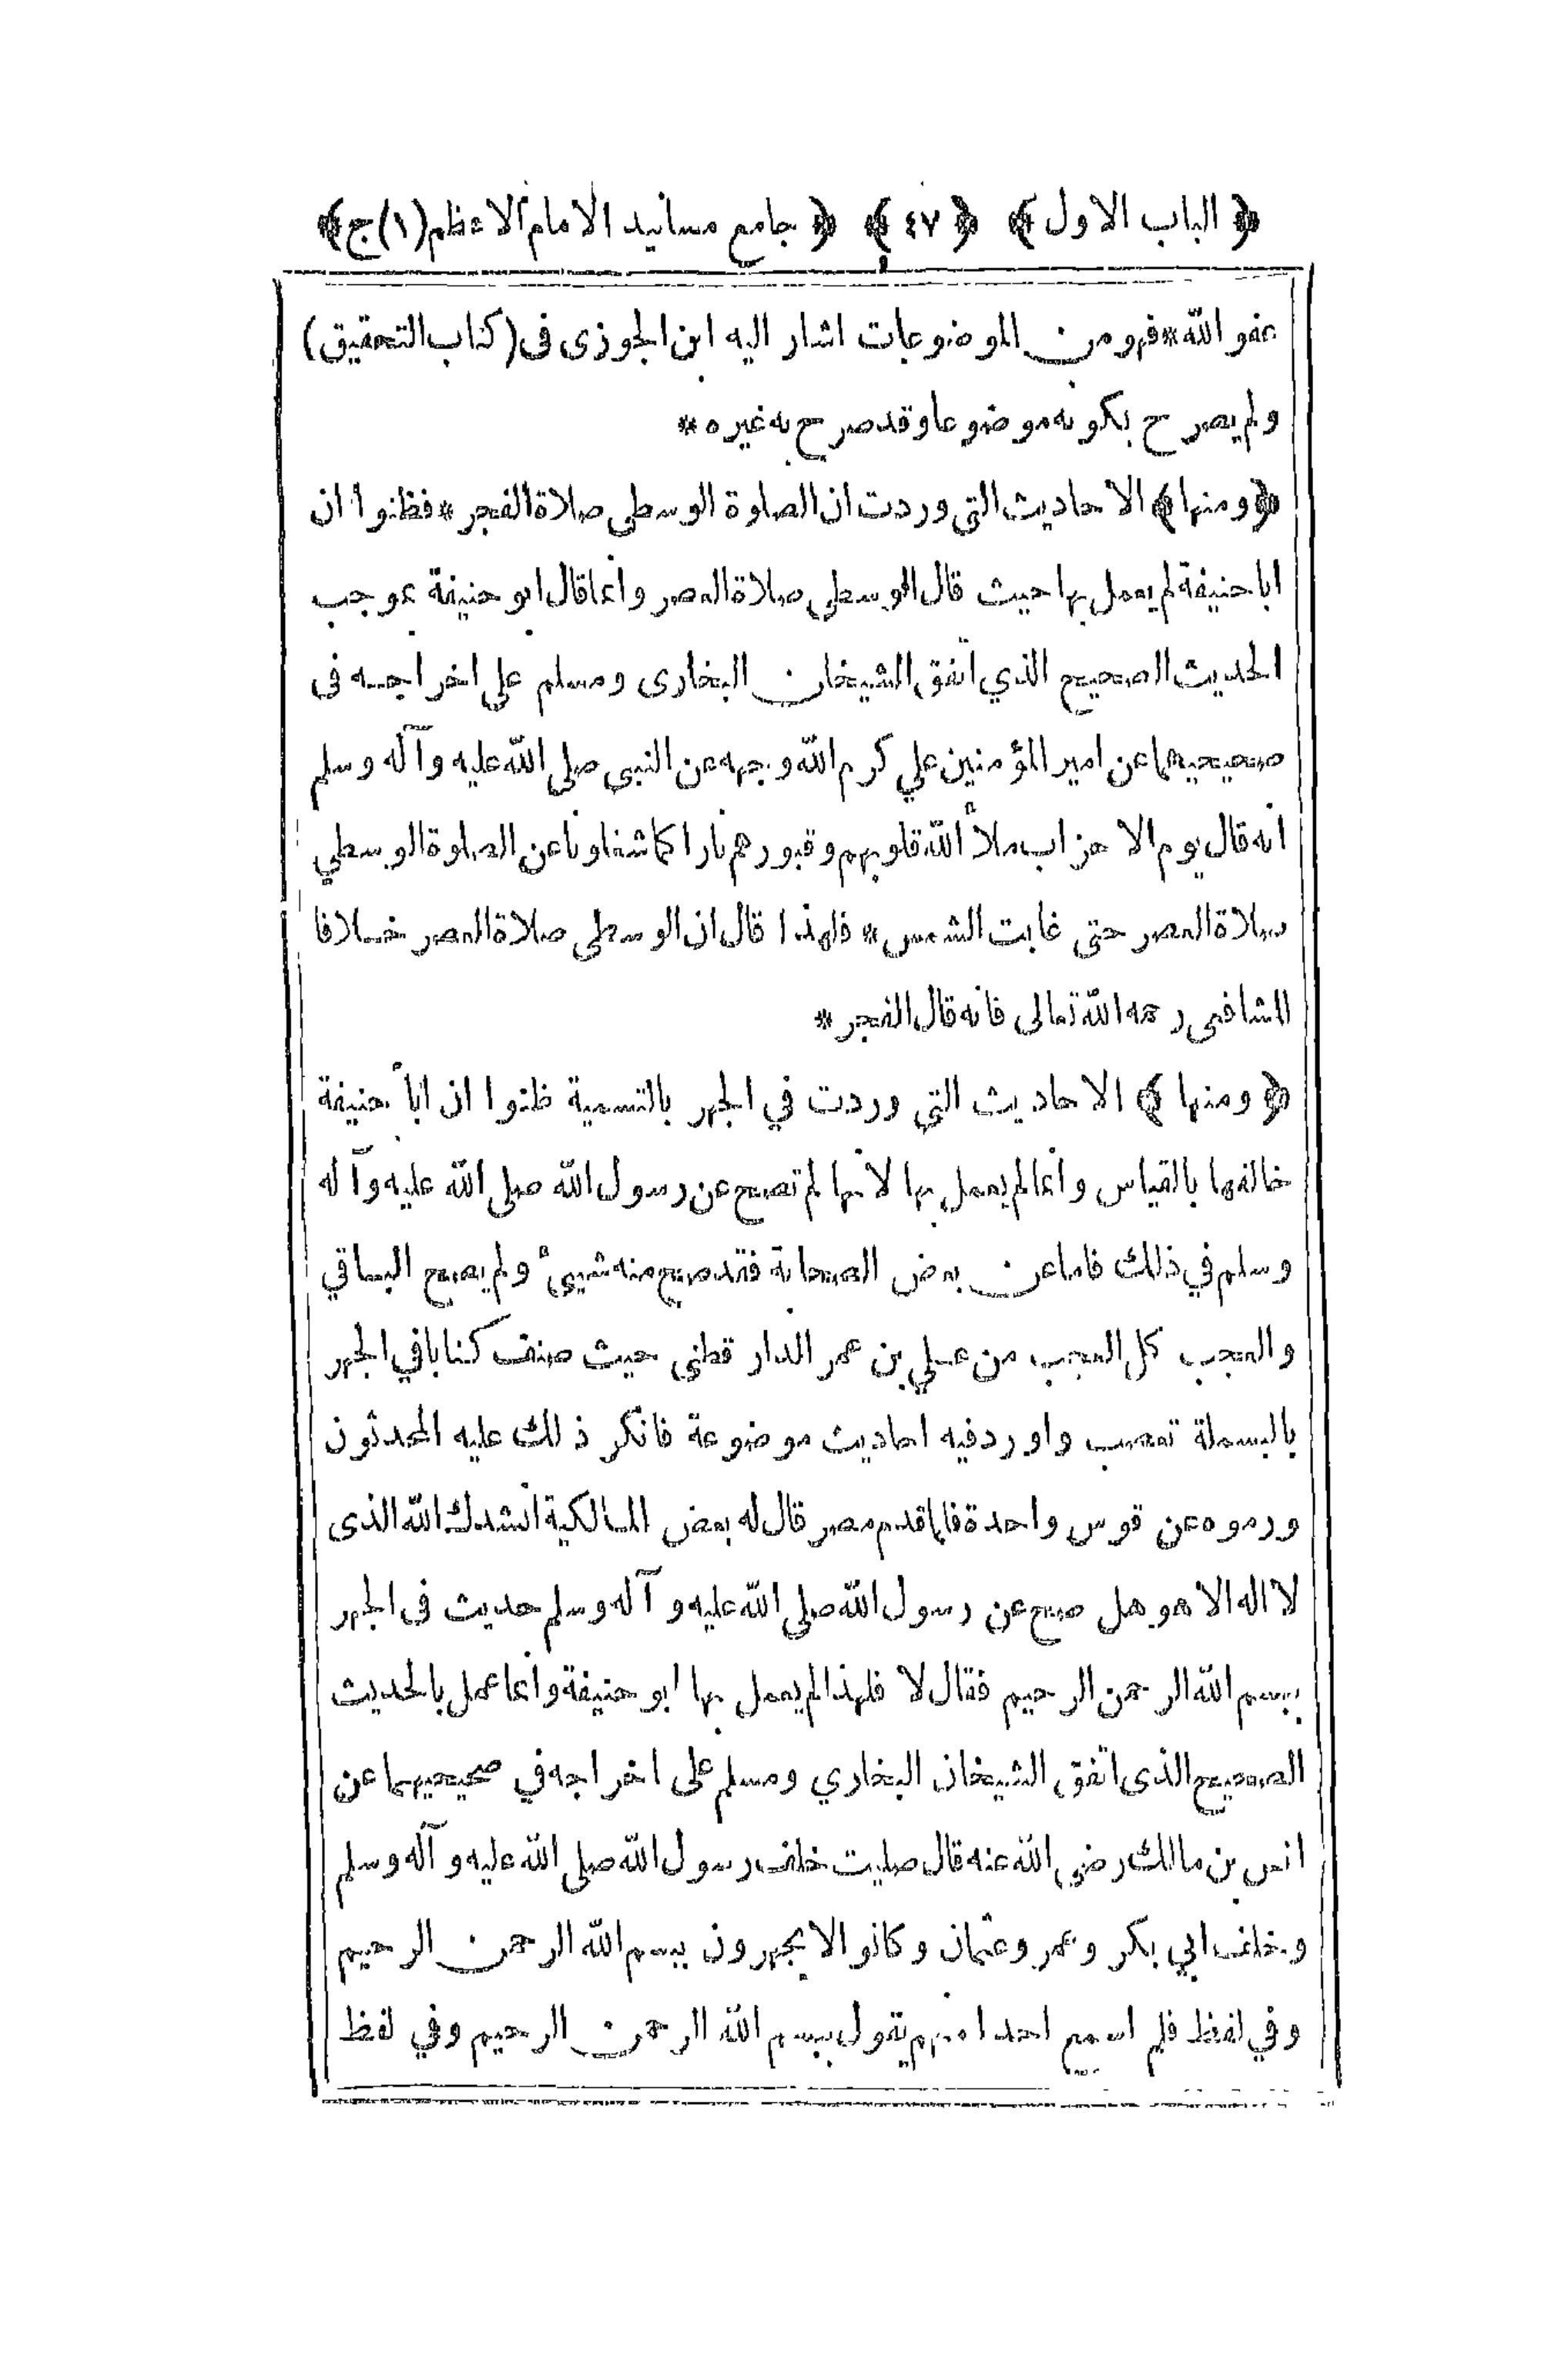 ﴿ الباب الاول ﴾ ﴿ ٤٧ ﴾ ﴿ جامع مسانيد الامام الاعظم (١) ج ﴾
عفو الله * فهو من الموضوعات اشار اليه ابن الجوزى فى (كتاب التحقيق)
ولم يصرح بكونه موضوعا وقد صرح به غيره *
﴿ ومنها ﴾ الاحاديث التى وردت ان الصلوة الوسطى صلاة الفجر * فظنوا ان
ابا حنيفة لم يعمل بها حيث قال الوسطى صلاة العصر وانما قال ابو حنيفة بموجب
الحديث الصحيح الذي اتفق الشيخان البخارى ومسلم على اخراجه فى
صحيحيهما عن امير المؤمنين علي كرم الله وجهه عن النبى صلى الله عليه وآله وسلم
انه قال يوم الاحزاب ملأ الله قلوبهم وقبورهم نارا كما شغلونا عن الصلوة الوسطي
صلاة العصر حتى غابت الشمس * فلهذا قال ان الوسطى صلاة العصر خلافا
للشافعى رحمه الله تعالى فانه قال الفجر *
﴿ ومنها ﴾ الاحاديث التي وردت في الجهر بالتسمية ظنوا ان ابا حنيفة
خالفها بالقياس وانما لم يعمل بها لانها لم تصح عن رسول الله صلى الله عليه وآله
وسلم في ذلك فاما عن بعض الصحابة فقد صح منه شيئ ولم يصح الباقي
والعجب كل العجب من علي بن عمر الدار قطنى حيث صنف كتابا في الجهر
بالبسملة تعصب واورد فيه احاديث موضوعة فانكر ذلك عليه المحدثون
ورموه عن قوس واحدة فلما قدم مصر قال له بعض المالكية انشدك الله الذى
لا اله الا هو هل صح عن رسول الله صلى الله عليه وآله وسلم حديث فى الجهر
ببسم الله الرحمن الرحيم فقال لا فلهذا لم يعمل بها ابو حنيفة وانما عمل بالحديث
الصحيح الذى اتفق الشيخان البخاري ومسلم على اخراجه في صحيحيهما عن
انس بن مالك رضي الله عنه قال صليت خلف رسول الله صلى الله عليه وآله وسلم
وخلف ابي بكر وعمر وعثمان وكانوا لا يجهرون ببسم الله الرحمن الرحيم
وفي لفظ فلم اسمع احدا منهم يقول ببسم الله الرحمن الرحيم وفي لفظ